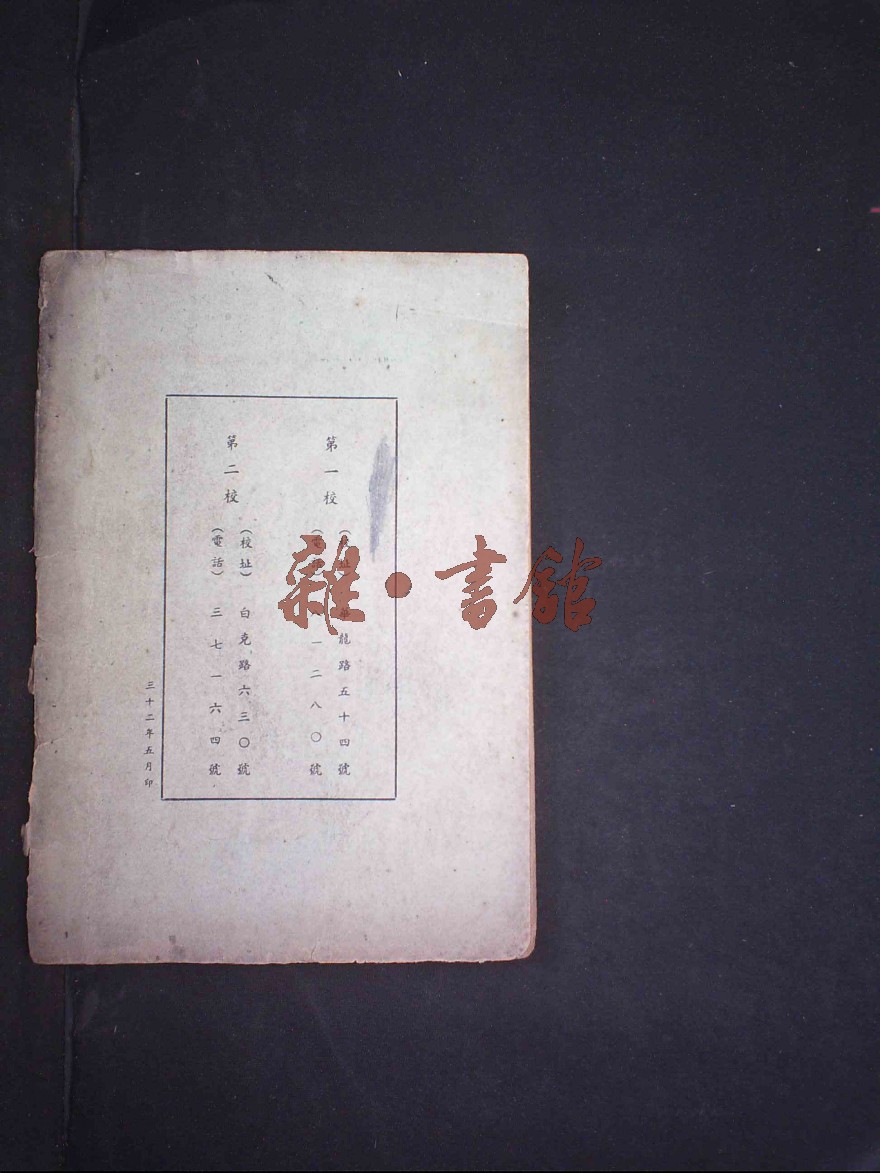 第一校
(校址) 華龍路五十四號
(電話) 八一二八〇號
第二校
(校址) 白克路六三〇號
(電話) 三七一六四號
三十二年五月印
雜·書館